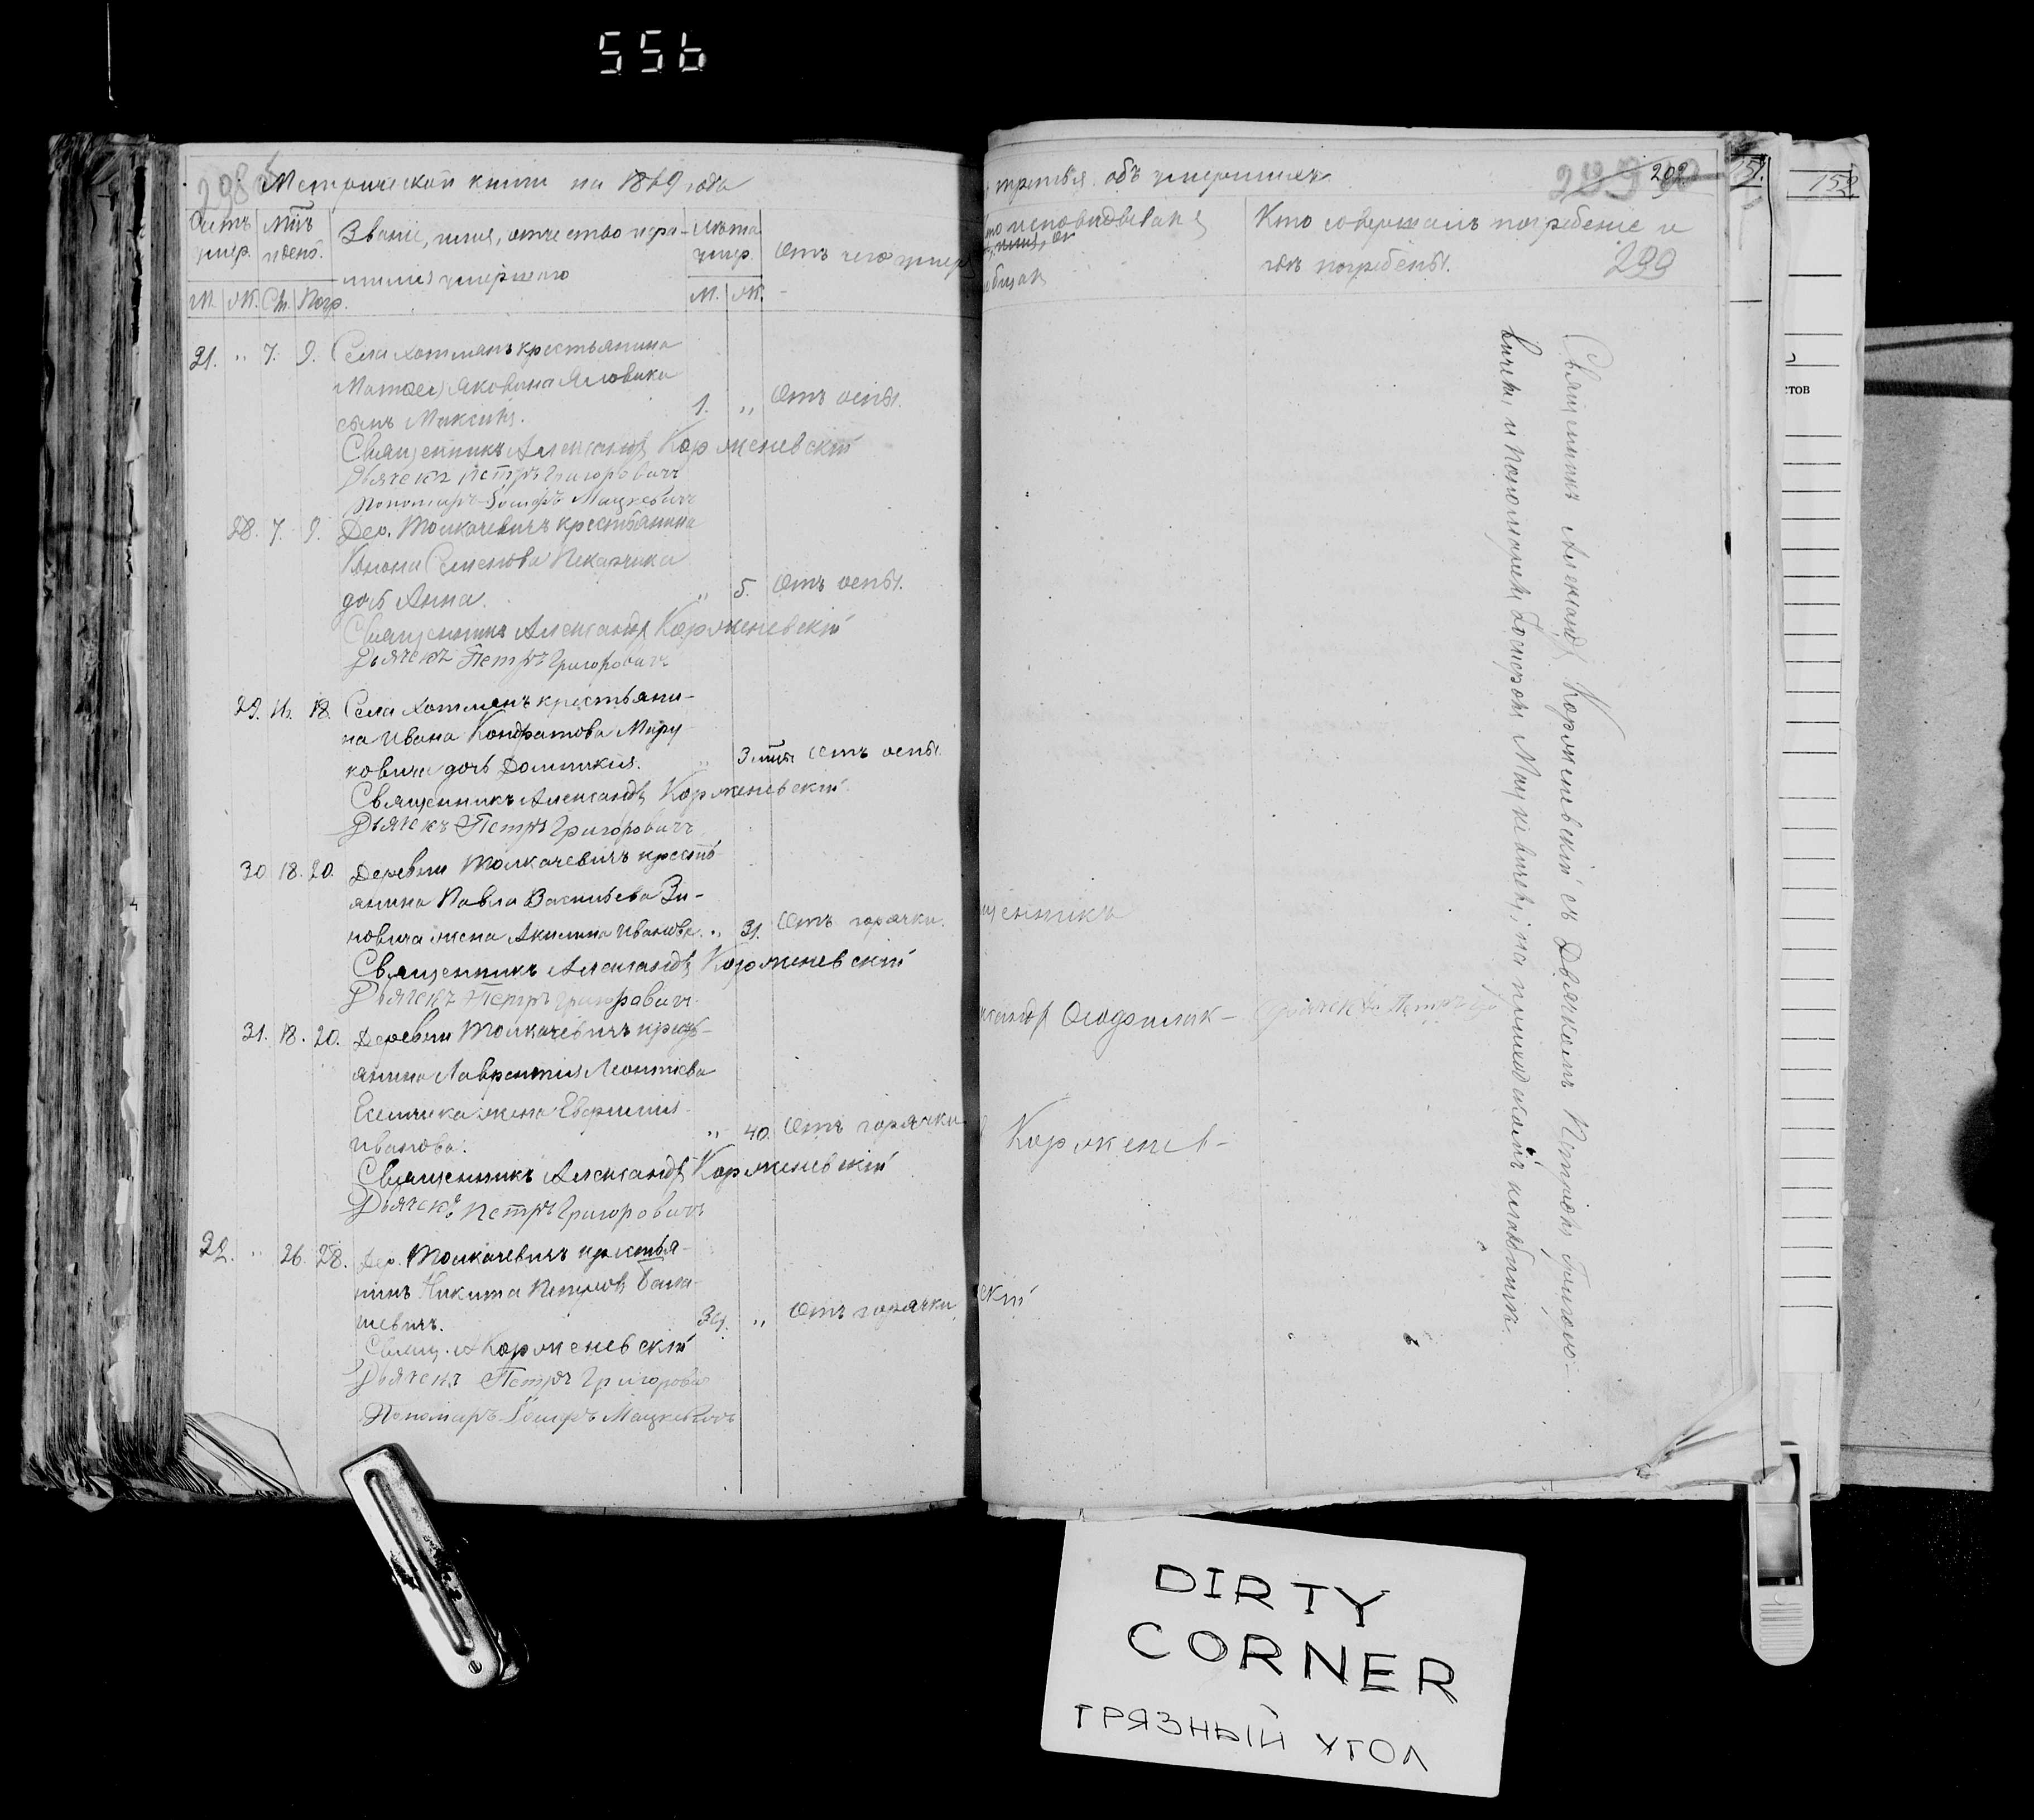 556
298
Метрической книги на 1869 года
Счетъ умер.
Мѣць и день.
Званіе, имя, отчество и фамилія умершаго
Лѣта умер.
Отъ чего умер
М. Ж. См. Погр.
М. Ж.
21. " 7. 9. Села Хотлянъ крестьянина
Матвея Яковина Яловика
сынъ Максимъ. 1. " Отъ оспы.
Священникъ Александръ Корженевскій
Дьячекъ Петръ Григоровичъ
Пономарь Іосифъ Мацкевичъ
28. 7. 9. Дер. Толкачевичъ крестьянина
Семенова Пекарчика
дочь Анна. " 5. Отъ оспы.
Священникъ Александръ Корженевскій
Дьячекъ Петръ Григоровичъ
29. 16. 18. Села Хотлянъ крестьяни-
на Ивана Кондратова Миру
ковича дочь Домникія. " 3 мцы Отъ оспы
Священникъ Александръ Корженевскій
Дьячекъ Петръ Григоровичъ
30. 18. 20. Деревни Толкачевичъ кресть
янина Павла Васильева Зи-
новича жена Акилина Иванова. " 31. Отъ горячки.
Священникъ Александръ Корженевскій
Дьячекъ Петръ Григоровичъ
31. 18. 20. Деревни Толкачевичъ кресть-
янина Лаврентія Леонтіева
жена Евфимія
Иванова. " 40. Отъ горячки
Священникъ Александръ Корженевскій
Дьячекъ Петръ Григоровичъ
22. " 26. 28. Дер. Толкачевичъ крестья-
нинъ Никита Петровъ Бала-
шевичъ. 34. " Отъ горячки
Свящ. А Корженевскій
Дьячекъ Петръ Григорови
Пономарь Іосифъ Мацкевичъ
третья объ умершихъ
202
151.
152
то исповѣдывалъ
Кто совершалъ погребеніе и
гдѣ погребены.
299
щенникъ
Корженев-
скій
Дьячекъ Петръ Гр
Священникъ Александръ Корженевскій съ Дьячкомъ Петромъ Григоро-
вичемъ и пономаремъ Іосифомъ Мацкевичемъ, на приходскомъ кладбищѣ.
стов
DIRTY
CORNER
ГРЯЗНЫЙ УГОЛ